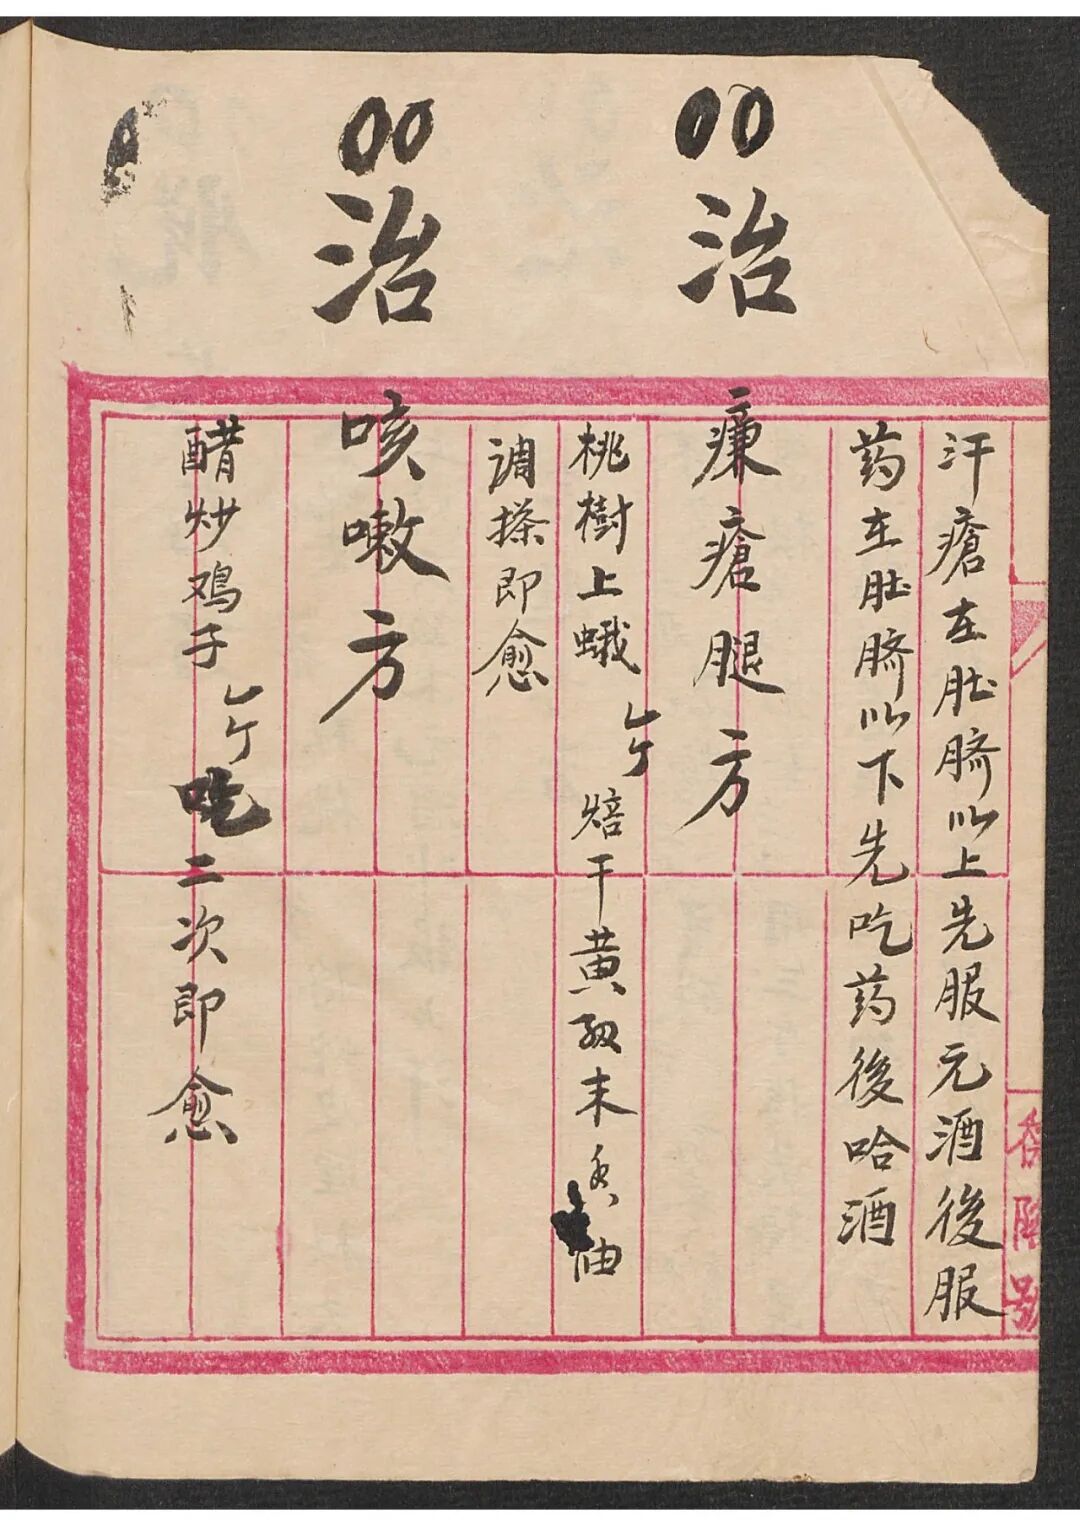 汗瘡在肚脐以上先服元酒後服
药在肚脐以下先吃药後哈酒
00治㾾瘡腿方
桃樹上蛾焙干黄末油
调搽即愈
00治咳嗽方
醋炒鸡子吃二次即愈